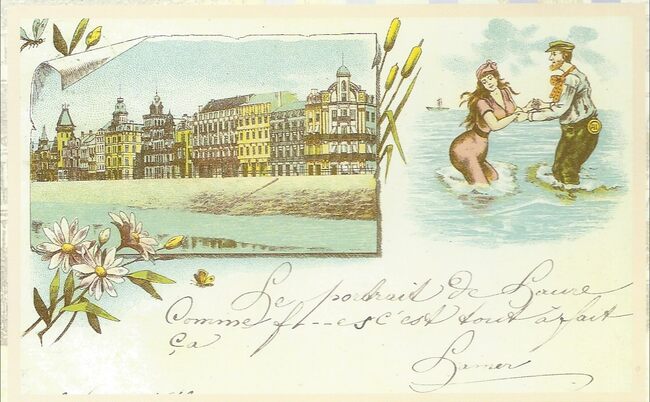 Le portrait de Laure
Comme f--es c'est tout à fait
ça
Lamer